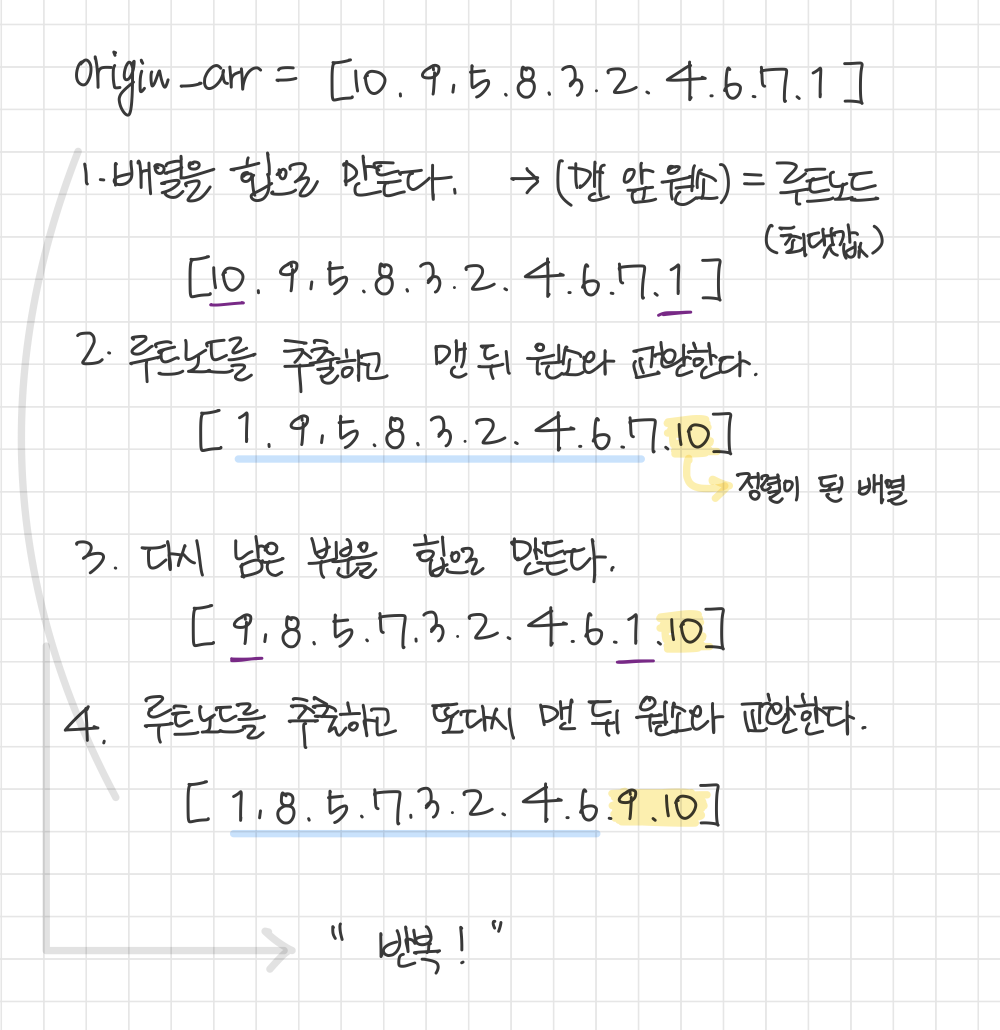 origin_arr = [10. 9, 5. 8. 3. 2. 4. 6. 7. 1]
1. 배열을 힙으로 만든다. → (맨 앞 원소) = 루트노드
(최댓값)
[10. 9, 5. 8. 3. 2. 4. 6. 7. 1]
2. 루트노드를 추출하고 맨 뒤 원소와 교환한다.
[1. 9, 5. 8. 3. 2. 4. 6. 7. 10]
정렬이 된 배열
3. 다시 남은 부분을 힙으로 만든다.
[9, 8. 5. 7. 3. 2. 4. 6. 1. 10]
4. 루트노드를 추출하고 또다시 맨 뒤 원소와 교환한다.
[1, 8. 5. 7. 3. 2. 4. 6. 9. 10]
" 반복! "